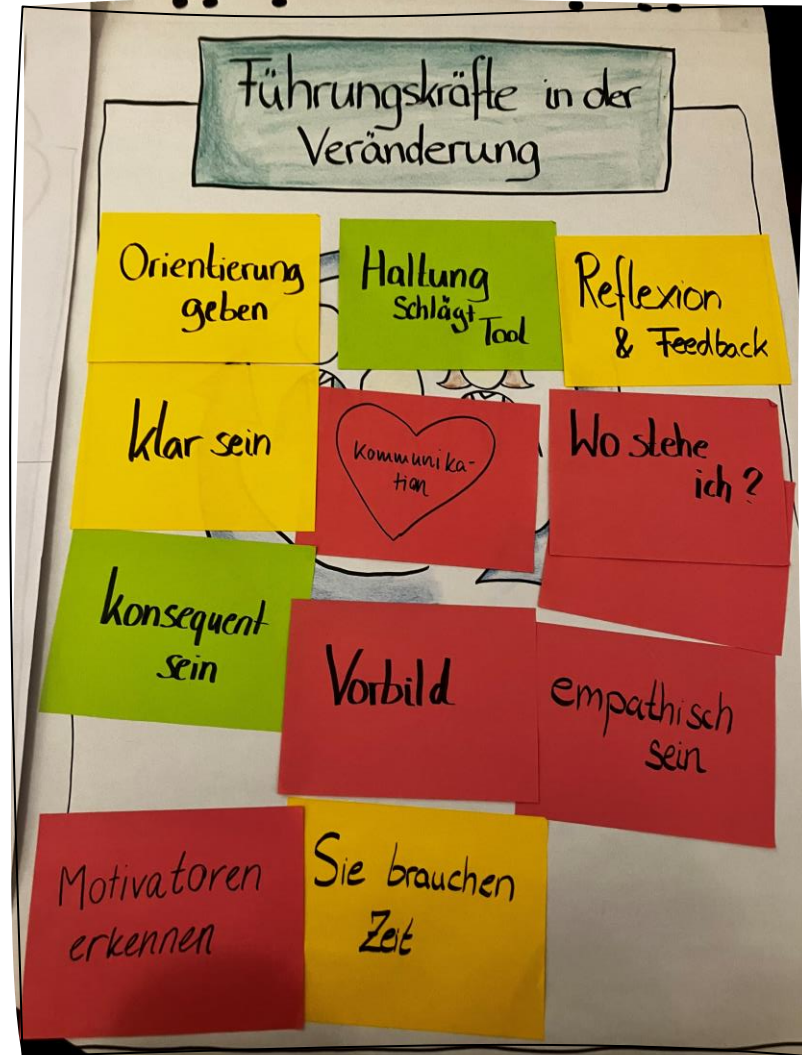 Führungskräfte in der
Veränderung
Orientierung
geben
Haltung
schlägt
Tool
Reflexion
& Feedback
klar sein
Kommunika-
tion
Wo stehe
ich?
konsequent
sein
Vorbild
empathisch
sein
Motivatoren
erkennen
Sie brauchen
Zeit